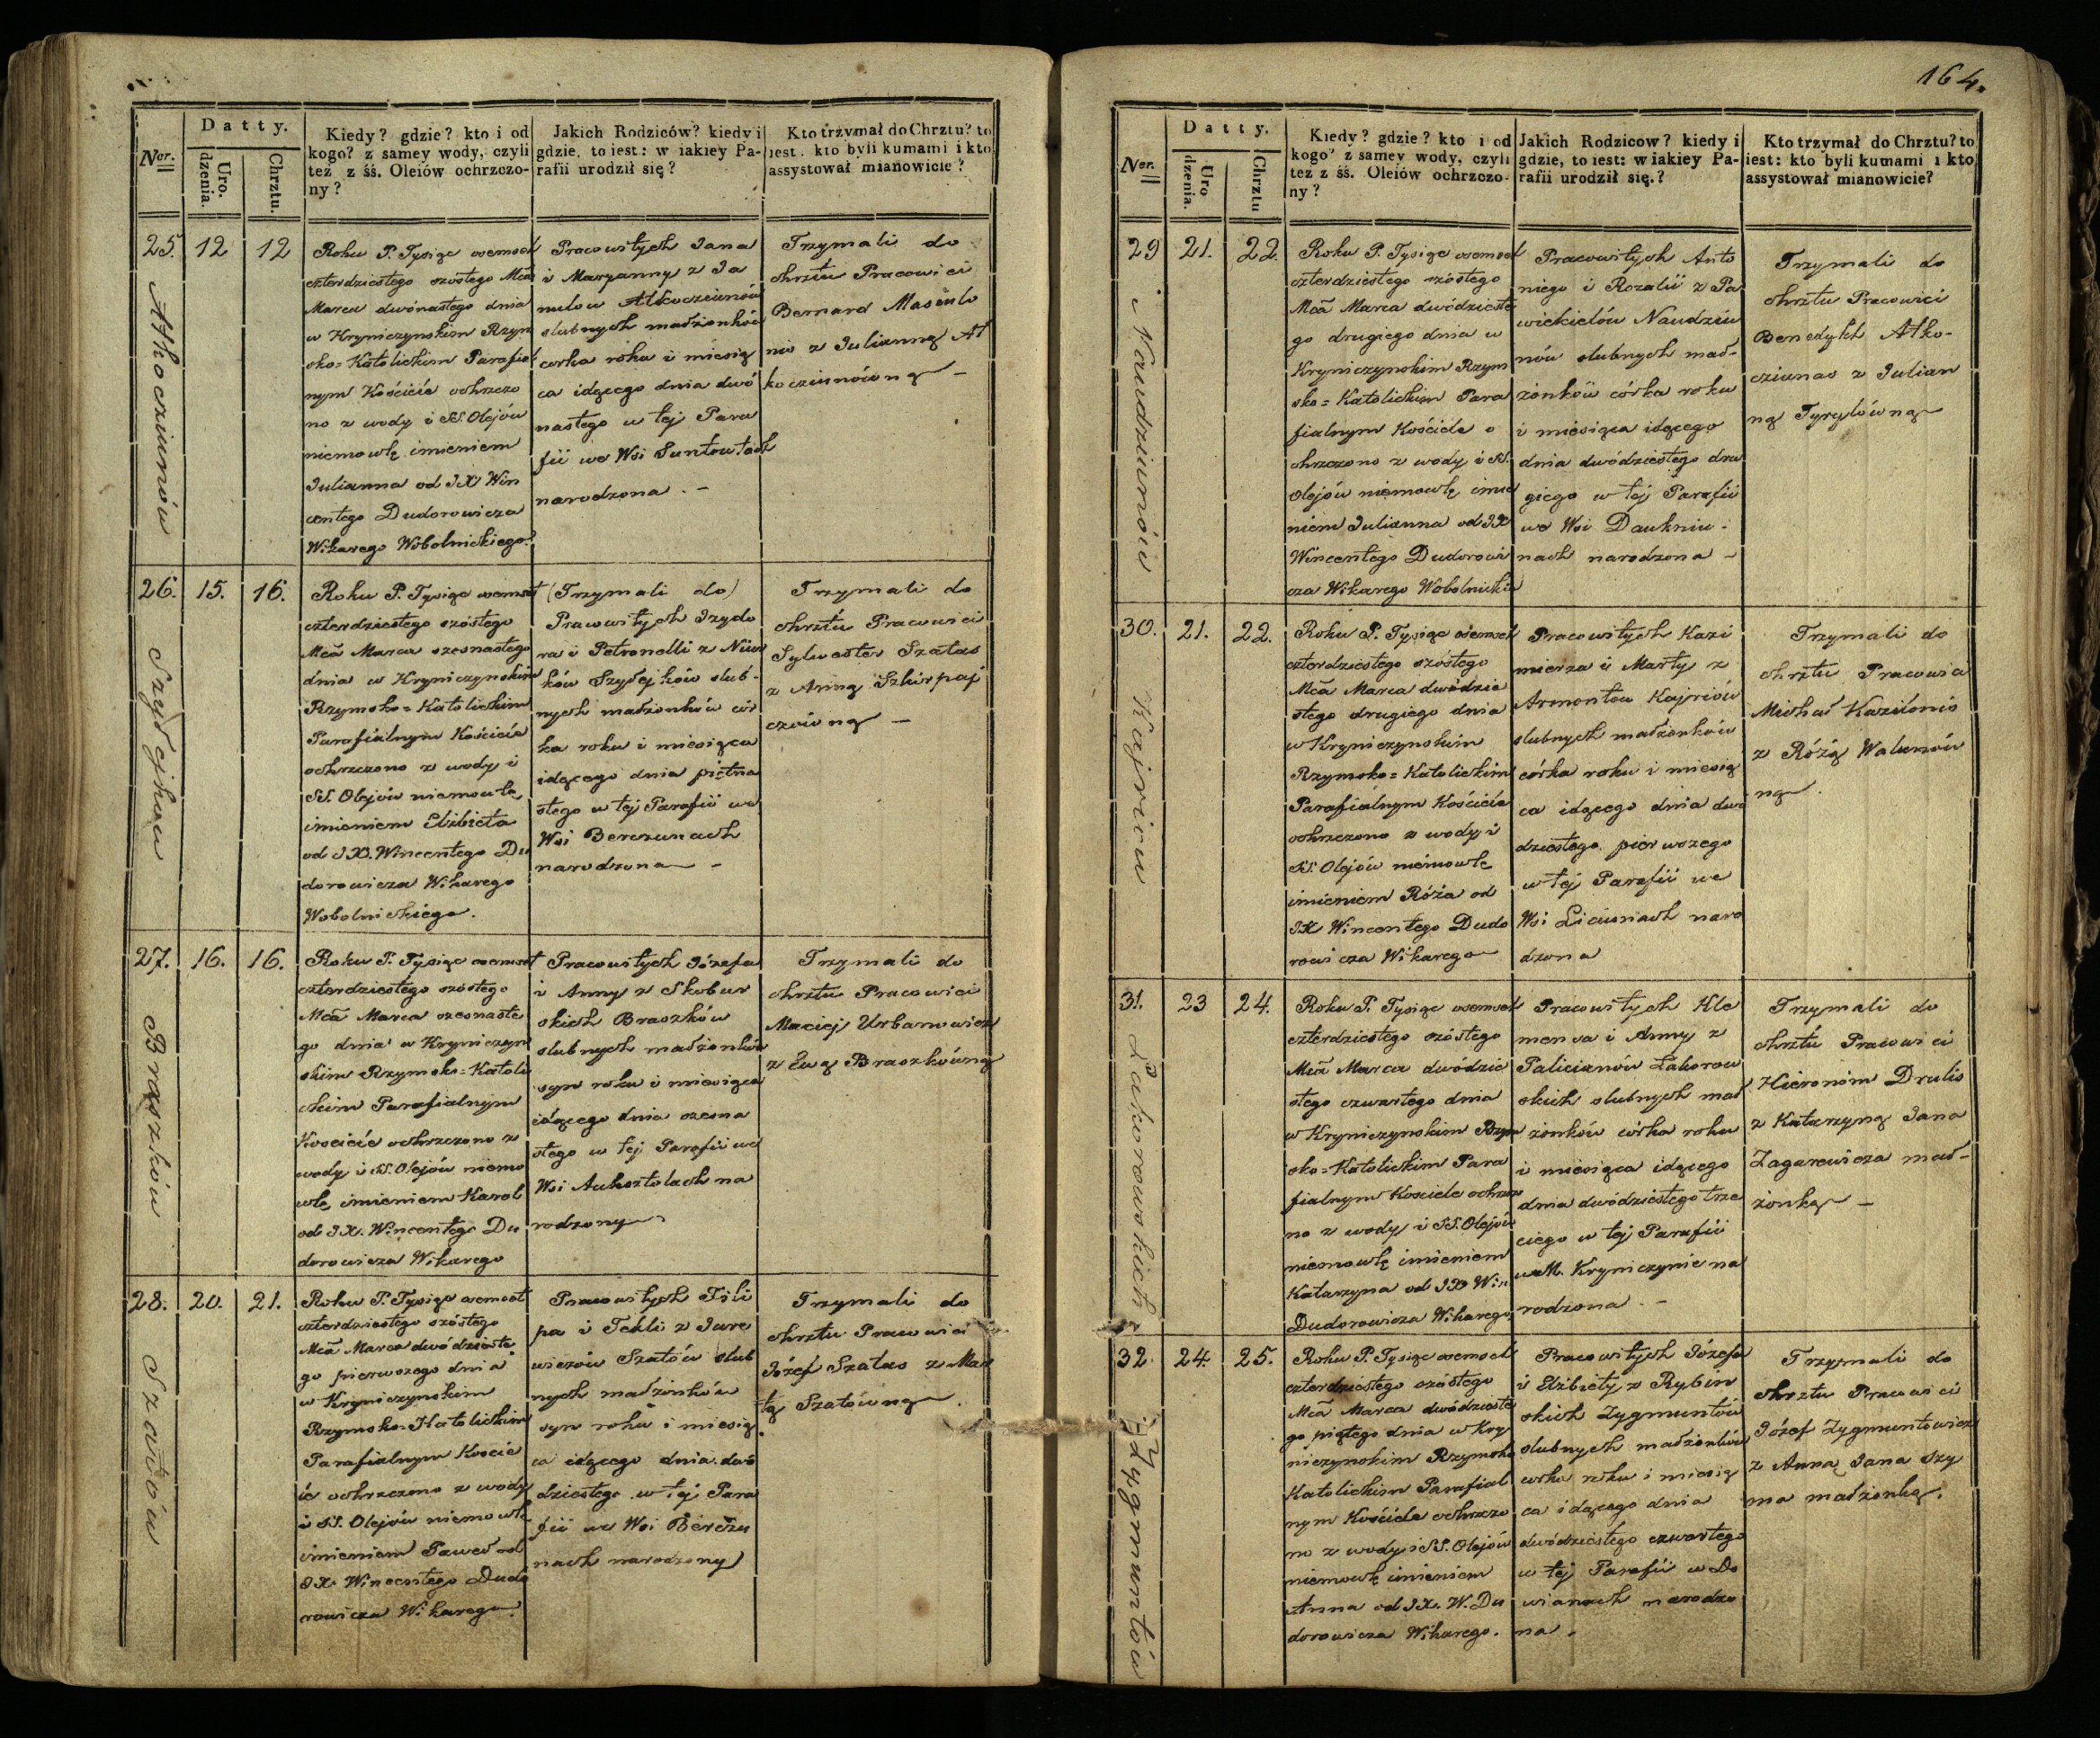 164.
Datty.
Ner.
Uro.
dzenia.
Chrztu.
Kiedy? gdzie? kto i od
kogo? z samey wody, czyli
też z śś. Oleiów ochrzczo-
ny?
Jakich Rodziców? kiedy i
gdzie, to iest: w iakiey Pa-
rafii urodził się?
Kto trzymał do Chrztu? to
iest. kto byli kumami i kto
assystował mianowicie?
25.
12
12
Atkocziunów
Roku P. Tysiąc osemset
czterdziestego szostego Mca
Marca dwónastego dnia
w Kryniczynskim Rzym
sko=Katolickim Parafial
nym Kościele ochrzczo
no z wody i SS. Olejów
niemowlę imieniem
Julianna od JX Win
centego Dudorowicza
Wikarego Wobolnickiego.
Pracowitych Jana
i Maryanny z Ja
nulow Atkocziunów
slubnych małżonków
corka roku i miesią
ca idącego dnia dwó
nastego w tej Para
fii we Wsi Suntowtach
narodzona. -
Trzymali do
chrztu Pracowici
Bernard Masiulo
nis z Julianną At
kocziunówną -
26.
15.
16.
Szyłejkow
Roku P. Tysiąc osemset
czterdziestego szóstego
Mca Marca szesnastego
dnia w Kryniczynskim
Rzymsko=Katolickim
Parafialnym Kościele
ochrzczono z wody i
SS. Olejów niemowlę
imieniem Elżbieta
od JX. Wincentego Du
dorowicza Wikarego
Wobolnickiego.
(Trzymali do)
Pracowitych Izydo
ra i Petronelli z
ków Szyłejków slub-
nych małżonków cór
ka roku i miesiąca
idącego dnia piętna
stego w tej Parafii we
Wsi Berczunach
narodzona -
Trzymali do
chrztu Pracowici
Sylwester Szatas
z Anną Szkirpaj
czówną -
27.
16.
16.
Braszków
Roku P. Tysiąc osemset
czterdziestego szóstego
Mca Marca szesnaste
go dnia w Kryniczyn
skim Rzymsko=Katoli
ckim Parafialnym
Kosciele ochrzczono z
wody i SS. Olejów niemo
wlę imieniem Karol
od JX. Wincentego Du
dorowicza Wikarego
Pracowitych Józefa
i Anny z Skobur
skich Braszków
slubnych małżonków
syn roku i miesiąca
idącego dnia szesna
stego w tej Parafii we
Wsi Auksztolach na
rodzony
Trzymali do
chrztu Pracowici
Maciej Urbanowicz
z Ewą Braszkówną
28.
20.
21.
Szatów
Roku P. Tysiąc osemset
czterdziestego szóstego
Mca Marca dwódzieste
go pierwszego dnia
w Kryniczynskim
Rzymsko=Katolickim
Parafialnym Koscie
le ochrzczono z wody
i SS. Olejów niemowlę
imieniem Paweł od
JX. Wincentego Dudo
rowicza Wikarego.
Pracowitych Fili
pa i Tekli z Jure
wiczów Szatów slub
nych małżonków
syn roku i miesią
ca idącego dnia dwó
dziestego w tej Para
fii we Wsi Berczu
nach narodzony
Trzymali do
chrztu Pracowici
Józef Szatas z Mar
tą Szatówną.
Datty.
Ner.
Uro
dzenia.
Chrztu
Kiedy? gdzie? kto i od
kogo? z samey wody, czyli
też z śś. Oleiów ochrzczo-
ny?
Jakich Rodzicow? kiedy i
gdzie, to iest: w iakiey Pa-
rafii urodził się.?
Kto trzymał do Chrztu? to
iest: kto byli kumami i kto
assystował mianowicie?
29
21.
22.
Naudziunów
Roku P. Tysiąc osemset
czterdziestego szóstego
Mca Marca dwódzieste
go drugiego dnia w
Kryniczynskim Rzym
sko=Katolickim Para
fialnym Kościele o
chrzczono z wody i SS.
Olejów niemowlę imie
niem Julianna od JX
Wincentego Dudorowi
cza Wikarego Wobolnickie
Pracowitych Anto
niego i Rozalii z Pa
wickielów Naudziu
nów slubnych mał-
żonków córka roku
i miesiąca idącego
dnia dwódziestego dru
giego w tej Parafii
we Wsi Daukniu-
nach narodzona -
Trzymali do
chrztu Pracowici
Benedykt Atko-
cziunas z Julian
ną Tyrylówną
30.
21.
22.
Kajriow
Roku P. Tysiąc osiemset
czterdziestego szóstego
Mca Marca dwódzie
stego drugiego dnia
w Kryniczynskim
Rzymsko=Katolickim
Parafialnym Kościele
ochrzczono z wody i
SS. Olejów niemowlę
imieniem Róża od
JX Wincentego Dudo
rowicza Wikarego
Pracowitych Kazi
mierza i Marty z
Armontow Kajriów
slubnych małżonków
córka roku i miesią
ca idącego dnia dwó
dziestego pierwszego
w tej Parafii we
Wsi Liciunach naro
dzona
Trzymali do
chrztu Pracowici
Michał Kaziionis
z Różą Walunów
ną.
31.
23
24.
Łakorowskich
Roku P. Tysiąc osemset
czterdziestego szóstego
Mca Marca dwódzie
stego czwartego dnia
w Kryniczynskim Rzym
sko=Katolickim Para
fialnym Kosciele ochrzczo
no z wody i SS. Olejów
niemowlę imieniem
Katarzyna od JX Win
Dudorowicza Wikarego
Pracowitych Kle
mensa i Anny z
Palicianów Łakorow
skich slubnych mał
żonków córka roku
i miesiąca idącego
dnia dwódziestego trze
ciego w tej Parafii
w M. Kryniczynie na
rodzona. -
Trzymali do
chrztu Pracowici
Hieronim Drulis
z Katarzyną Jana
Zagarewicza mał-
żonką -
32.
24.
25.
Zygmuntów
Roku P. Tysiąc osemset
czterdziestego szóstego
Mca Marca dwódzieste
go piątego dnia w Kry
niczynskim Rzymsko
Katolickim Parafial
nym Kościele ochrzczo
no z wody i SS. Olejów
niemowlę imieniem
Anna od JX. W. Du
dorowicza Wikarego.
Pracowitych Józefa
i Elżbiety z Rybin
skich Zygmuntów
slubnych małżonków
corka roku i miesią
ca idącego dnia
dwódziestego czwartego
w tej Parafii w Do
wianach narodzo
na.
Trzymali do
chrztu Pracowici
Józef Zygmuntowicz
z Anną Jana Szy
ma małżonką.